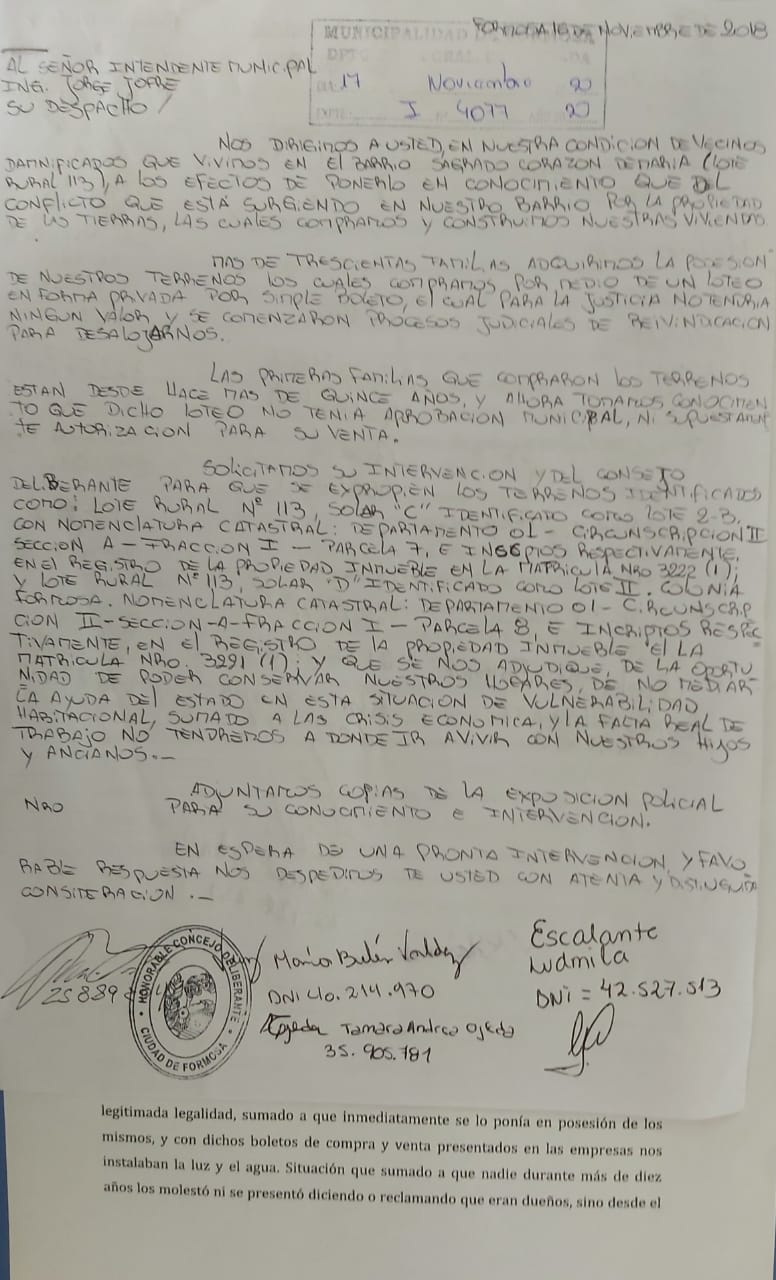 FORMOSA 16 DE NOVIEMBRE DE 2018
MUNICIPALIDAD
17 Noviembre 20
I 4077 20
AL SEÑOR INTENDENTE MUNICIPAL
ING. JORGE JOFRE
SU DESPACHO /
NOS DIRIGIMOS A USTED, EN NUESTRA CONDICION DE VECINOS
DAMNIFICADOS QUE VIVIMOS EN EL BARRIO SAGRADO CORAZON DE MARIA (LOTE
RURAL 113), A LOS EFECTOS DE PONERLO EN CONOCIMIENTO QUE DEL
CONFLICTO QUE ESTÁ SURGIENDO EN NUESTRO BARRIO POR LA PROPIEDAD
DE LAS TIERRAS, LAS CUALES COMPRAMOS Y CONSTRUIMOS NUESTRAS VIVIENDAS.
MAS DE TRESCIENTAS FAMILIAS ADQUIRIMOS LA POSESION
DE NUESTROS TERRENOS LOS CUALES COMPRAMOS POR MEDIO DE UN LOTEO
EN FORMA PRIVADA POR SIMPLE BOLETO, EL CUAL PARA LA JUSTICIA NO TENDRIA
NINGUN VALOR Y SE COMENZARON PROCESOS JUDICIALES DE REIVINDICACION
PARA DESALOJARNOS.
LAS PRIMERAS FAMILIAS QUE COMPRARON LOS TERRENOS
ESTAN DESDE HACE MAS DE QUINCE AÑOS, Y AHORA TOMAMOS CONOCIMIEN
TO QUE DICHO LOTEO NO TENIA APROBACION MUNICIPAL, NI SUPUESTAMEN
TE AUTORIZACION PARA SU VENTA.
SOLICITAMOS SU INTERVENCION Y DEL CONSEJO
DELIBERANTE PARA QUE SE EXPROPIEN LOS TERRENOS IDENTIFICADOS
COMO: LOTE RURAL Nº 113, SOLAR "C" IDENTIFICADO COMO LOTE 2-B.
CON NOMENCLATURA CATASTRAL: DEPARTAMENTO 01 - CIRCUNSCRIPCION II
SECCION A - FRACCION I - PARCELA 7, E INSCRIPTOS RESPECTIVAMENTE,
EN EL REGISTRO DE LA PROPIEDAD INMUEBLE EN LA MATRICULA NRO 3222 (1);
Y LOTE RURAL Nº 113, SOLAR "D" IDENTIFICADO COMO LOTE II. COLONIA
FORMOSA. NOMENCLATURA CATASTRAL: DEPARTAMENTO 01 - CIRCUNSCRIP
CION II-SECCION-A-FRACCION I - PARCELA 8, E INCRIPTOS RESPEC
TIVAMENTE, EN EL REGISTRO DE LA PROPIEDAD INMUEBLE EL LA
MATRICULA NRO. 3291 (1); Y QUE SE NOS ADJUDIQUE, DE LA OPORTU
NIDAD DE PODER CONSERVAR NUESTROS HOGARES, DE NO MEDIAR
LA AYUDA DEL ESTADO EN ESTA SITUACION DE VULNERABILIDAD
HABITACIONAL, SUMADO A LAS CRISIS ECONOMICA, Y LA FALTA REAL DE
TRABAJO NO TENDREMOS A DONDE IR A VIVIR CON NUESTROS HIJOS
Y ANCIANOS.-
ADJUNTAMOS COPIAS DE LA EXPOSICION POLICIAL
NRO PARA SU CONOCIMIENTO E INTERVENCION.
EN ESPERA DE UNA PRONTA INTERVENCION, Y FAVO
RABLE RESPUESTA NOS DESPEDIMOS DE USTED CON ATENTA Y DISTINGUIDA
CONSITERACION.-
HONORABLE CONCEJO DELIBERANTE
CIUDAD DE FORMOSA
María Belén Valdez
DNI 40.214.970
Ojeda Tamara Andrea Ojeda
35.905.781
Escalante
Ludmila
DNi = 42.527.513
legitimada legalidad, sumado a que inmediatamente se lo ponía en posesión de los
mismos, y con dichos boletos de compra y venta presentados en las empresas nos
instalaban la luz y el agua. Situación que sumado a que nadie durante más de diez
años los molestó ni se presentó diciendo o reclamando que eran dueños, sino desde el